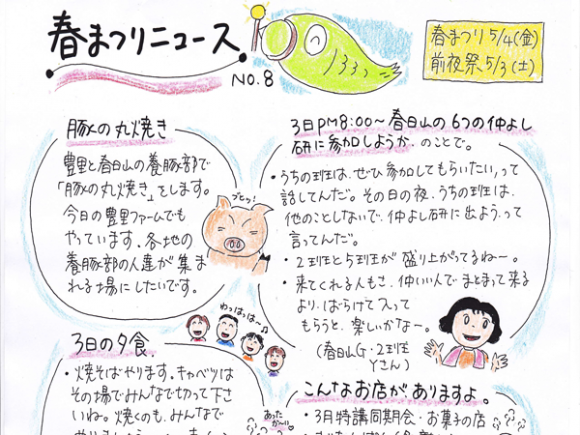 春まつりニュース
NO.8
春まつり5/4(金)
前夜祭5/3(土)
豚の丸焼き
豊里と春日山の養豚部で
「豚の丸焼き」をします。
今日の豊里ファームでも
やっています。各地の
養豚部の人達が集ま
れる場にしたいです。
ブヒッ!
3日pm8:00〜春日山の6つの仲よし
研に参加しようか、のことで。
・うちの班は、ぜひ参加してもらいたい、って
話してんだ。その日の夜、うちの班は、
他のことしないで、仲よし研に出よう、って
言ってんだ。
・2班と5班が盛り上がってるね〜。
・来てくれる人もさ、仲いい人でまとまって来る
より、ばらけて入って
もらうと、楽しいかな〜。
(春日山G・2班
Yさん)
わっはっは〜♪
3日の夕食
・焼そばやります。キャベツは
その場でみんなで切って下さ
いね。焼くのも、みんなで
あったか〜い
こんなお店がありますよ。
・3月特講同期会・お菓子の店